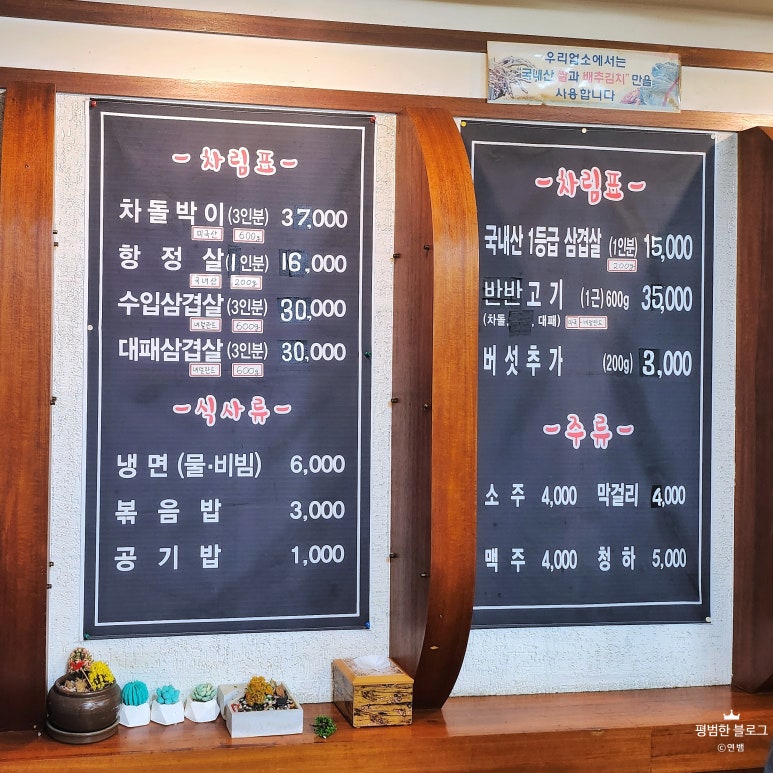 우리업소에서는
"국내산 쌀과 배추김치"만을
사용합니다
-차림표-
차돌박이 (3인분) 37,000
미국산 600g
항정살 (1인분) 16,000
국내산 200g
수입삼겹살 (3인분) 30,000
네덜란드 600g
대패삼겹살 (3인분) 30,000
네덜란드 600g
-식사류-
냉면 (물·비빔) 6,000
볶음밥 3,000
공기밥 1,000
-차림표-
국내산 1등급 삼겹살 (1인분) 15,000
200g
반반고기 (1근)600g 35,000
(차돌, , 대패)
버섯추가 (200g) 3,000
-주류-
소주 4,000 막걸리 4,000
맥주 4,000 청하 5,000
평범한 블로그
©연뱀